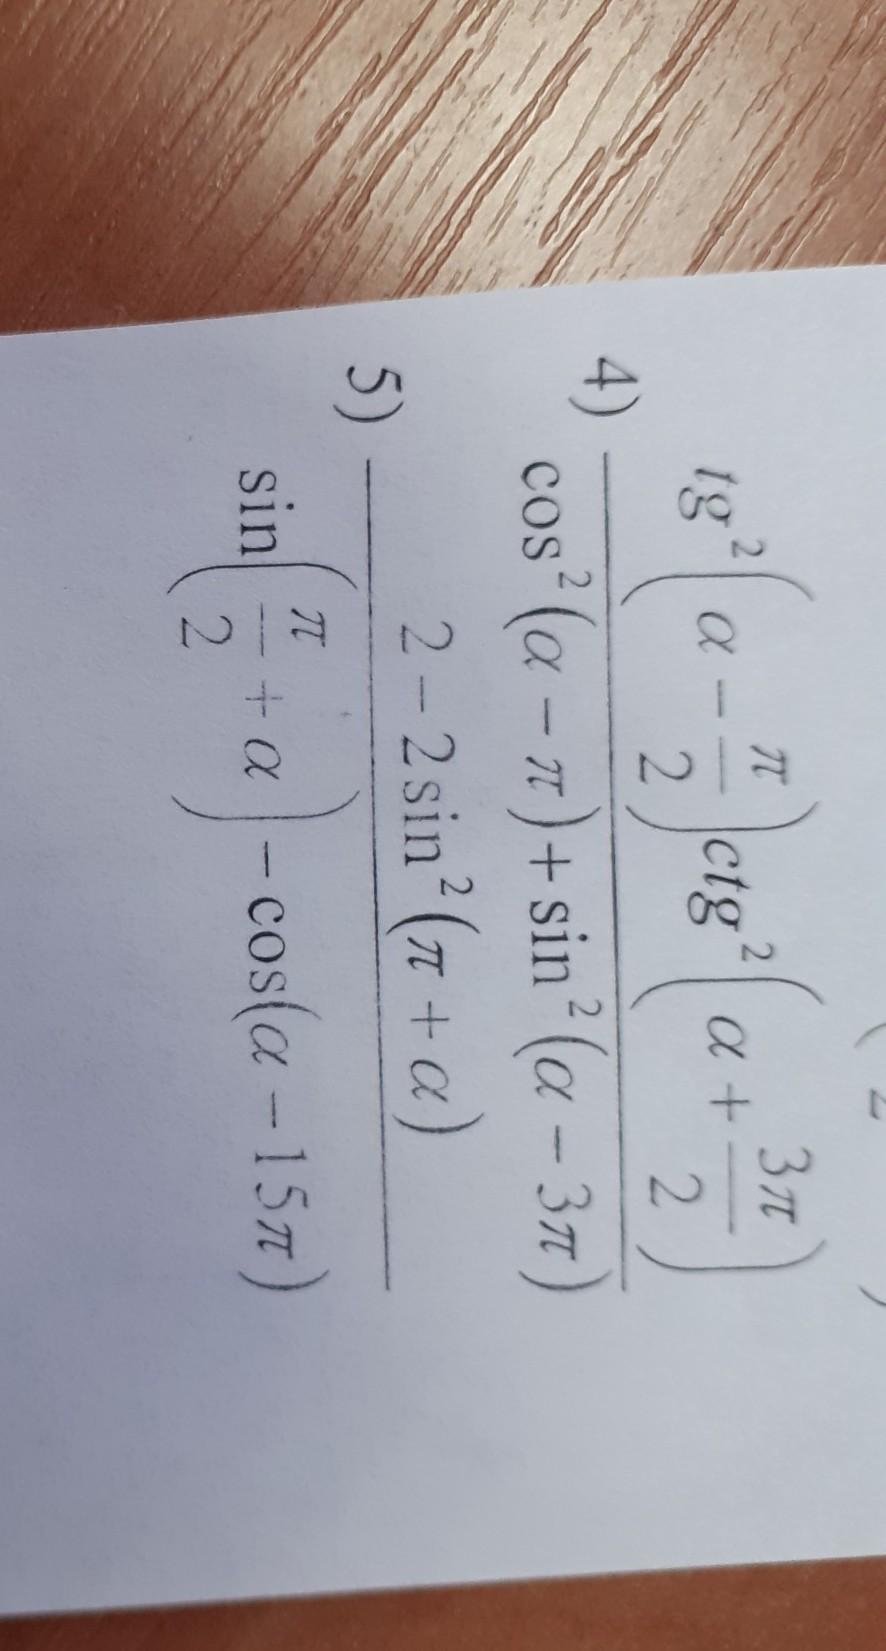 4) tg²(α − π/2)ctg²(α + 3π/2)
cos²(α − π) + sin²(α − 3π)
5) 2 − 2sin²(π + α)
sin(π/2 + α) − cos(α − 15π)